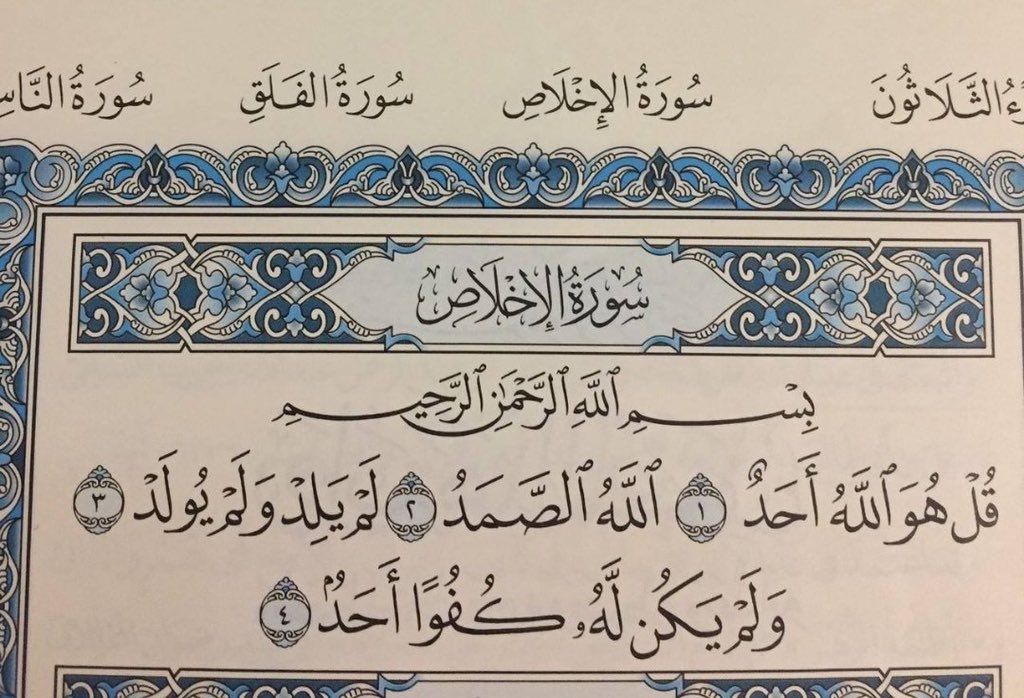 الثَّلَاثُونَ سُورَةُ الإِخْلَاصِ سُورَةُ الفَلَقِ سُورَةُ النَّاسِ
سُورَةُ الإِخْلَاصِ
بِسْمِ ٱللَّهِ ٱلرَّحْمَٰنِ ٱلرَّحِيمِ
قُلْ هُوَ ٱللَّهُ أَحَدٌ ١ ٱللَّهُ ٱلصَّمَدُ ٢ لَمْ يَلِدْ وَلَمْ يُولَدْ ٣
وَلَمْ يَكُن لَّهُۥ كُفُوًا أَحَدٌۢ ٤